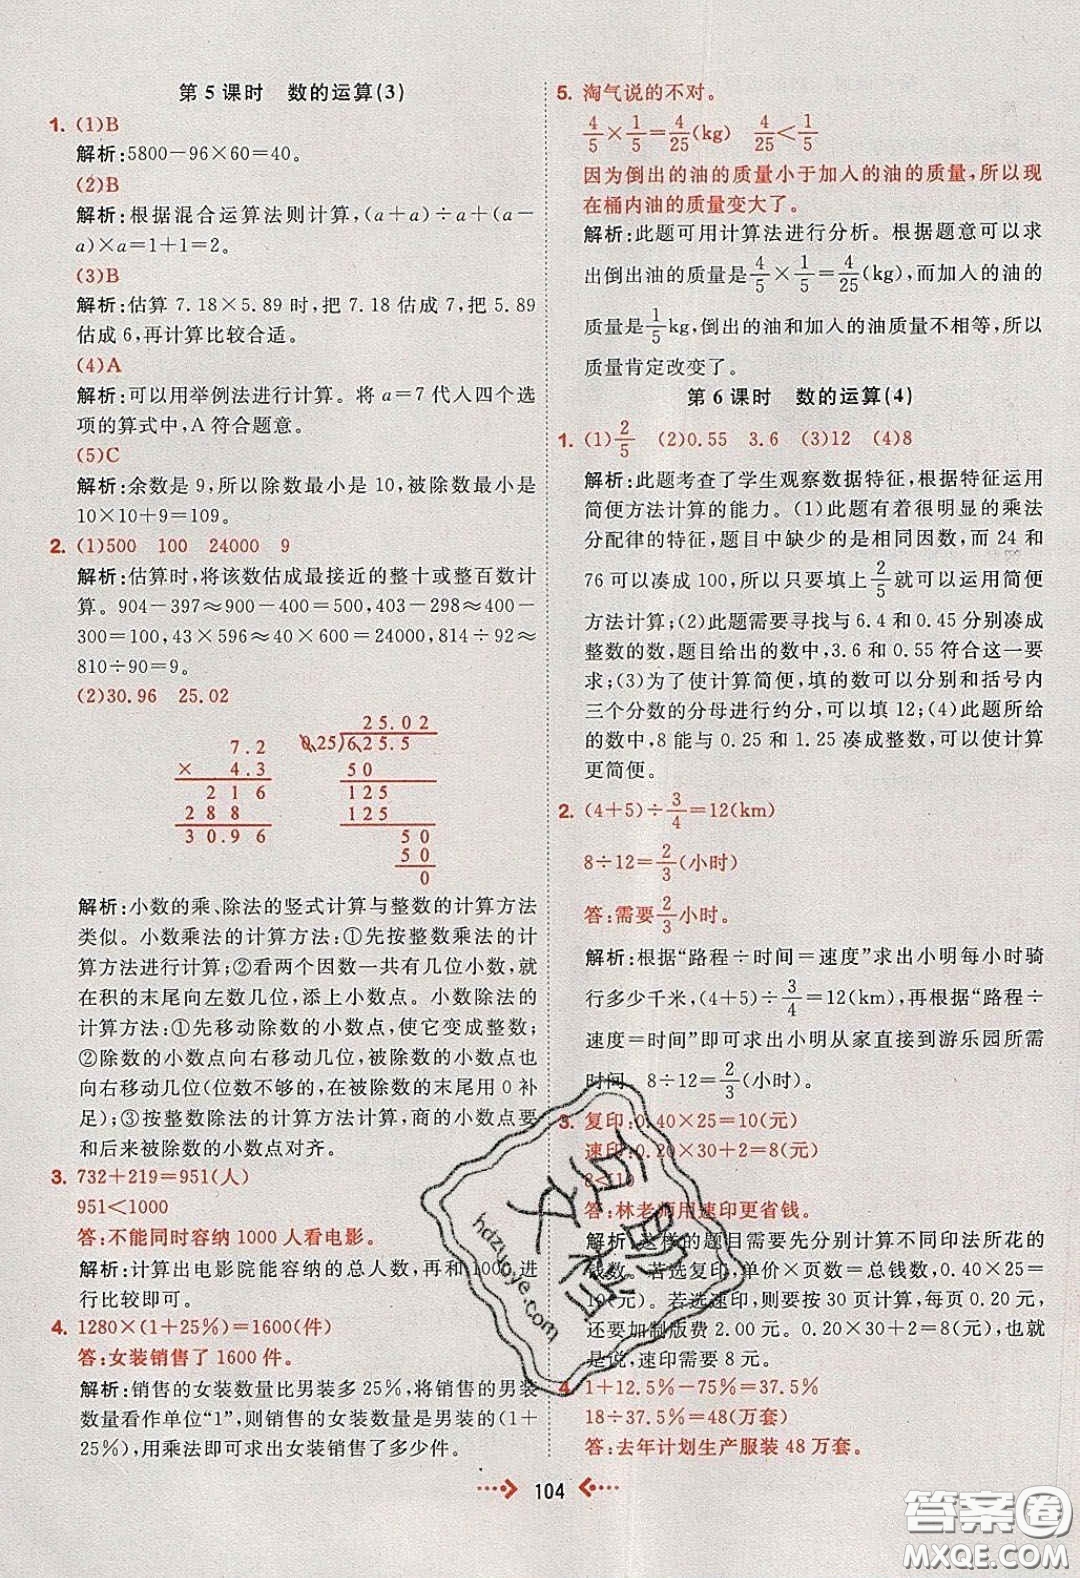 第5课时　数的运算(3)
1. (1)B
解析:5800－96×60＝40。
(2)B
解析:根据混合运算法则计算,(a＋a)÷a＋(a－
a)×a＝1＋1＝2。
(3)B
解析:估算 7.18×5.89 时,把 7.18 估成 7,把 5.89
估成 6,再计算比较合适。
(4)A
解析:可以用举例法进行计算。将 a＝7 代入四个选
项的算式中,A 符合题意。
(5)C
解析:余数是 9,所以除数最小是 10,被除数最小是
10×10＋9＝109。
2. (1)500　100　24000　9
解析:估算时,将该数估成最接近的整十或整百数计
算。904－397≈900－400＝500,403－298≈400－
300＝100,43×596≈40×600＝24000,814÷92≈
810÷90＝9。
(2)30.96　25.02
7.2
× 4.3
2 1 6
2 8 8
3 0.9 6
25.02
0.25)6.25.5
50
125
125
50
50
0
解析:小数的乘、除法的竖式计算与整数的计算方法
类似。小数乘法的计算方法:①先按整数乘法的计
算方法进行计算;②看两个因数一共有几位小数,就
在积的末尾向左数几位,添上小数点。小数除法的
计算方法:①先移动除数的小数点,使它变成整数;
②除数的小数点向右移动几位,被除数的小数点也
向右移动几位(位数不够的,在被除数的末尾用 0 补
足);③按整数除法的计算方法计算,商的小数点要
和后来被除数的小数点对齐。
3. 732＋219＝951(人)
951＜1000
答:不能同时容纳 1000 人看电影。
解析:计算出电影院能容纳的总人数,再和 1000 进
行比较即可。
4. 1280×(1＋25％)＝1600(件)
答:女装销售了 1600 件。
解析:销售的女装数量比男装多 25％,将销售的男装
数量看作单位“1”,则销售的女装数量是男装的(1＋
25％),用乘法即可求出女装销售了多少件。
5. 淘气说的不对。
4/5×1/5＝4/25(kg)　4/25＜1/5
因为倒出的油的质量小于加入的油的质量,所以现
在桶内油的质量变大了。
解析:此题可用计算法进行分析。根据题意可以求
出倒出油的质量是4/5×1/5＝4/25(kg),而加入的油的
质量是1/5kg,倒出的油和加入的油质量不相等,所以
质量肯定改变了。
第6课时　数的运算(4)
1. (1)2/5　(2)0.55　3.6　(3)12　(4)8
解析:此题考查了学生观察数据特征,根据特征运用
简便方法计算的能力。(1)此题有着很明显的乘法
分配律的特征,题目中缺少的是相同因数,而 24 和
76 可以凑成 100,所以只要填上2/5就可以运用简便
方法计算;(2)此题需要寻找与 6.4 和 0.45 分别凑成
整数的数,题目给出的数中,3.6 和 0.55 符合这一要
求;(3)为了使计算简便,填的数可以分别和括号内
三个分数的分母进行约分,可以填 12;(4)此题所给
的数中,8 能与 0.25 和 1.25 凑成整数,可以使计算
更简便。
2. (4＋5)÷3/4＝12(km)
8÷12＝2/3(小时)
答:需要2/3小时。
解析:根据“路程÷时间＝速度”求出小明每小时骑
行多少千米,(4＋5)÷3/4＝12(km),再根据“路程÷
速度＝时间”即可求出小明从家直接到游乐园所需
时间　8÷12＝2/3(小时)。
3. 复印:0.40×25＝10(元)
速印:0.20×30＋2＝8(元)
8＜10
答:林老师用速印更省钱。
解析:这样的题目需要先分别计算不同印法所花的
钱数。若选复印,单价×页数＝总钱数,0.40×25＝
10(元)。若选速印,按 30 页计算,每页 0.20 元,
还要加制版费 2.00 元。0.20×30＋2＝8(元),也就
是说,速印需要 8 元。
4. 1＋12.5％－75％＝37.5％
18÷37.5％＝48(万套)
答:去年计划生产服装 48 万套。
104
hdzuoye.com
答案圈
MXQE.COM